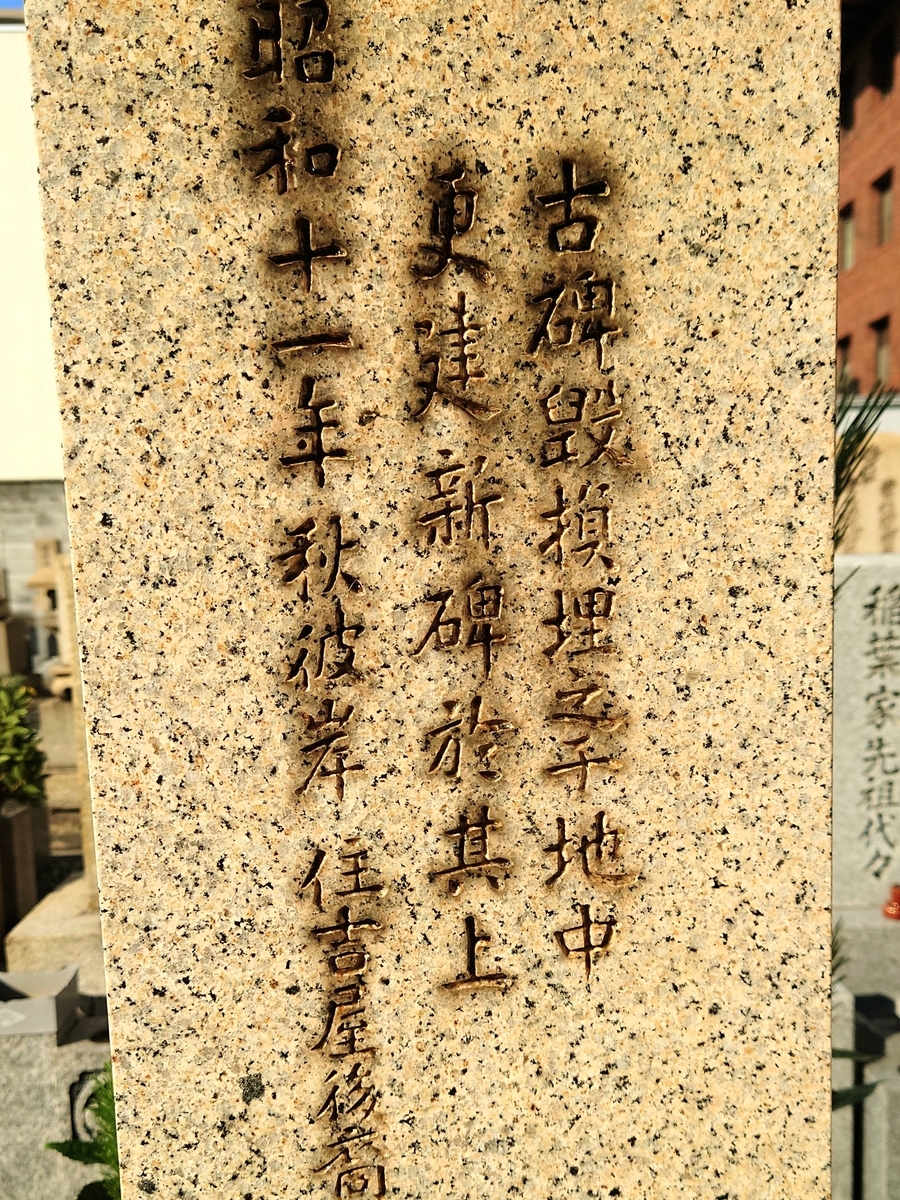 古碑毀損埋之于地中
更建新碑於其上
昭和十一年秋彼岸 住吉屋後裔
稲葉家先祖代々